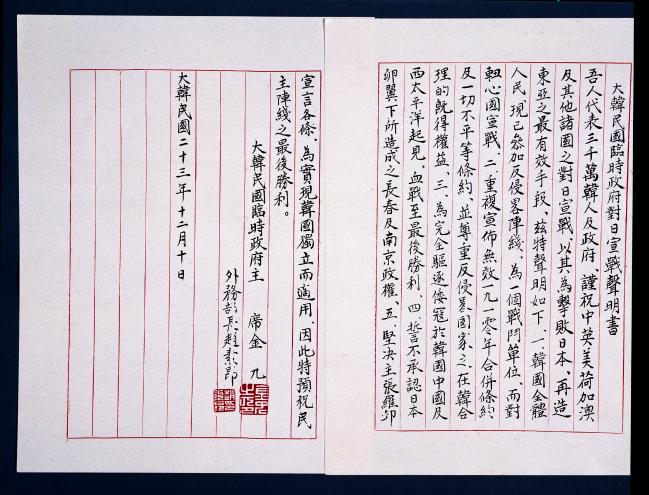 大韓民國臨時政府對日宣戰聲明書
吾人代表三千萬韓人及政府、謹祝中英美荷加澳
及其他諸國之對日宣戰、以其為擊敗日本、再造
東亞之最有效手段、玆特聲明如下、一、韓國全體
人民現已參加反侵畧陣綫、為一個戰鬥單位、而對
軸心國宣戰、二、重複宣佈無效一九一零年合併條約
及一切不平等條約、並尊重反侵畧國家之、在韓合
理的既得權益、三、為完全驅逐倭寇於韓國中國及
西太平洋起見、血戰至最後勝利、四、誓不承認日本
卵翼下所造成之長春及南京政權、五、堅决主張羅邱
宣言各條、為實現韓國獨立而適用、因此特預祝民
主陣綫之最後勝利。
大韓民國臨時政府主 席金 九
外務部長趙素昂
大韓民國二十三年十二月十日